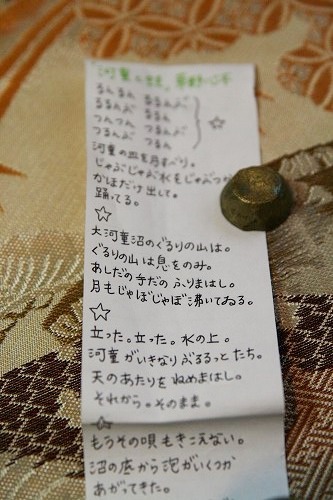 河童と蛙 草野心平
るんるん るるんぶ
るるんぶ るるん
つんつん つるんぶ
つるんぶ つるん
河童の皿を月すべり。
じゃぶじゃぶ水をじゃぶつか
かほだけ出して。
踊ってる。
大河童沼のぐるりの山は。
ぐるりの山は息をのみ。
あしだの手だの ふりまはし。
月もじゃぼじゃぼ沸いてゐる。
立った。立った。水の上。
河童がいきなりぶるるっとたち。
天のあたりをねめまはし。
それから。そのまま。
もうその唄もきこえない。
沼の底から泡がいくつか
あがってきた。